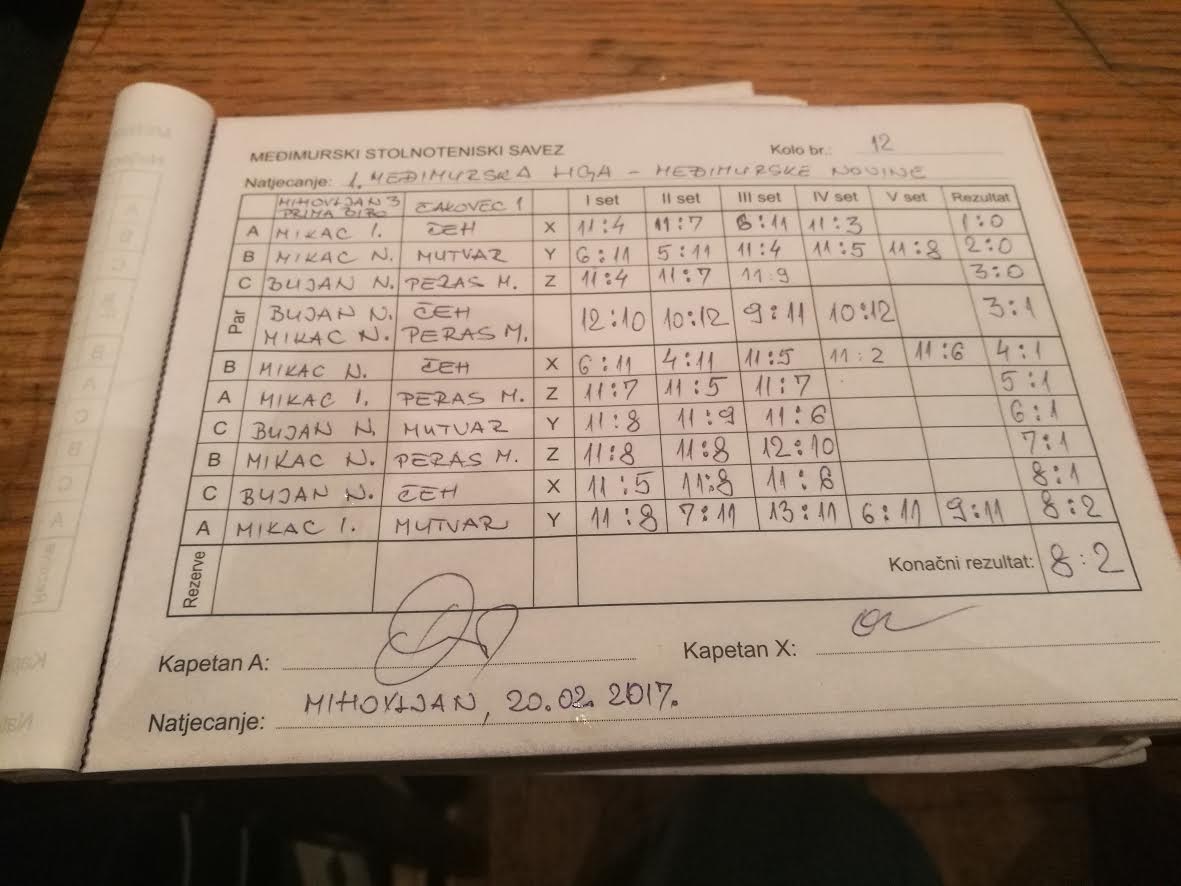 MEĐIMURSKI STOLNOTENISKI SAVEZ Kolo br.: 12
Natjecanje: 1. MEĐIMURSKA LIGA - MEĐIMURSKE NOVINE
MIHOVLJAN 3 PRIMA BIRO ČAKOVEC 1 I set II set III set IV set V set Rezultat
A MIKAC I. ČEH X 11:4 11:7 8:11 11:3 1:0
B MIKAC N. MUTVAR Y 6:11 5:11 11:4 11:5 11:8 2:0
C BUJAN N. PERAS M. Z 11:4 11:7 11:9 3:0
Par BUJAN N. ČEH 12:10 10:12 9:11 10:12 3:1
MIKAC N. PERAS M.
B MIKAC N. ČEH X 6:11 4:11 11:5 11:2 11:6 4:1
A MIKAC I. PERAS M. Z 11:7 11:5 11:7 5:1
C BUJAN N. MUTVAR Y 11:8 11:9 11:6 6:1
B MIKAC N. PERAS M. Z 11:8 11:8 12:10 7:1
C BUJAN N. ČEH X 11:5 11:8 11:8 8:1
A MIKAC I. MUTVAR Y 11:8 7:11 13:11 6:11 9:11 8:2
Rezerve Konačni rezultat: 8:2
Kapetan A: Kapetan X:
Natjecanje: MIHOVLJAN, 20.02.2017.